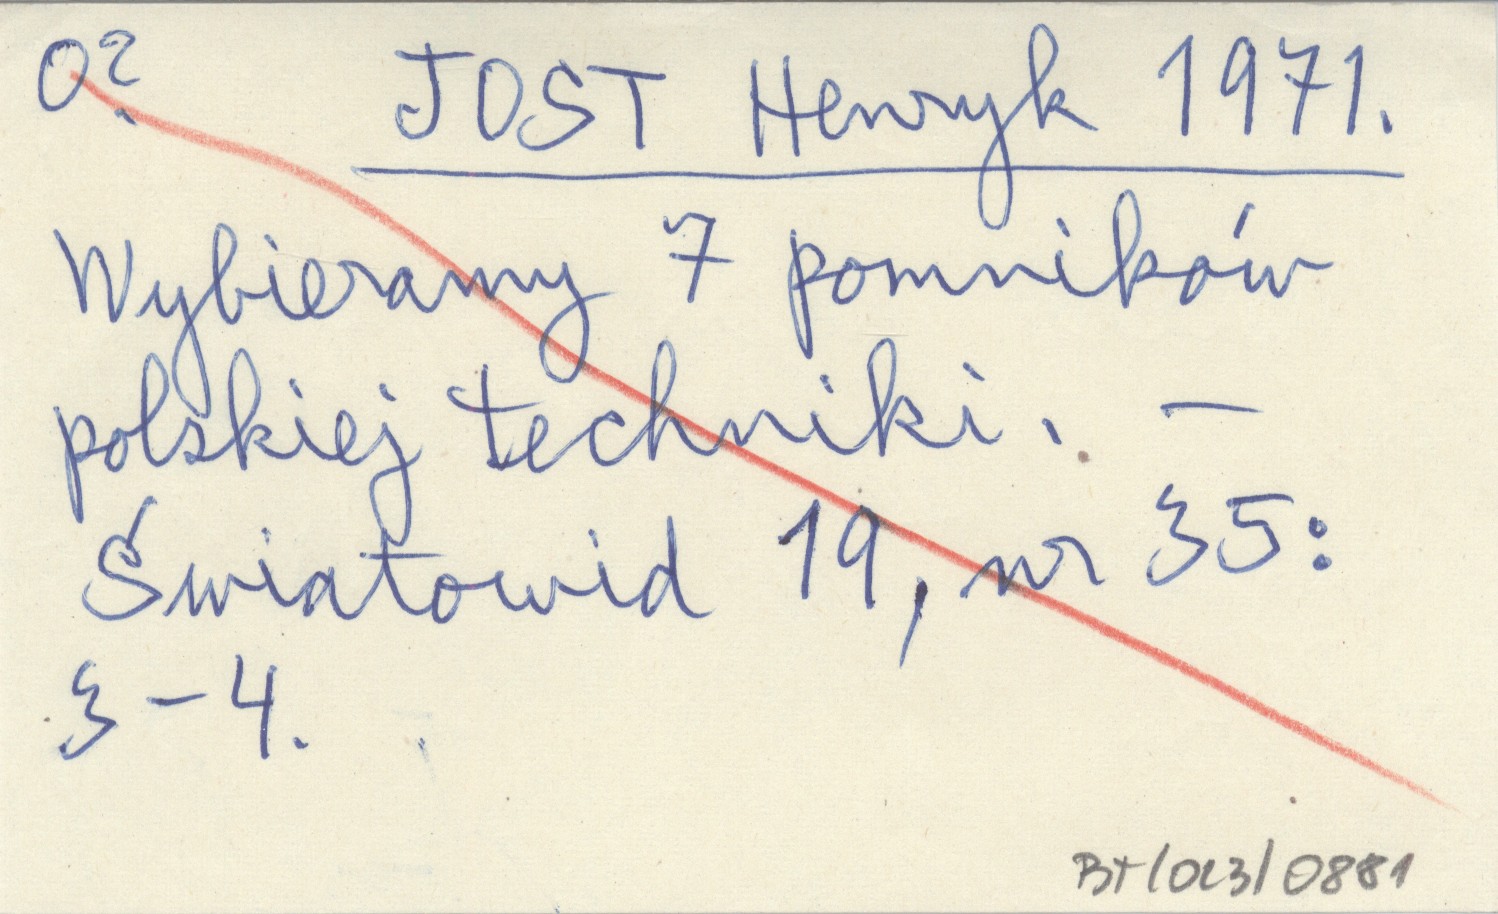 O? JOST Henryk 1971.
Wybieramy 7 pomników
polskiej techniki. –
Światowid 19, nr 35:
3-4.
BT/013/0881